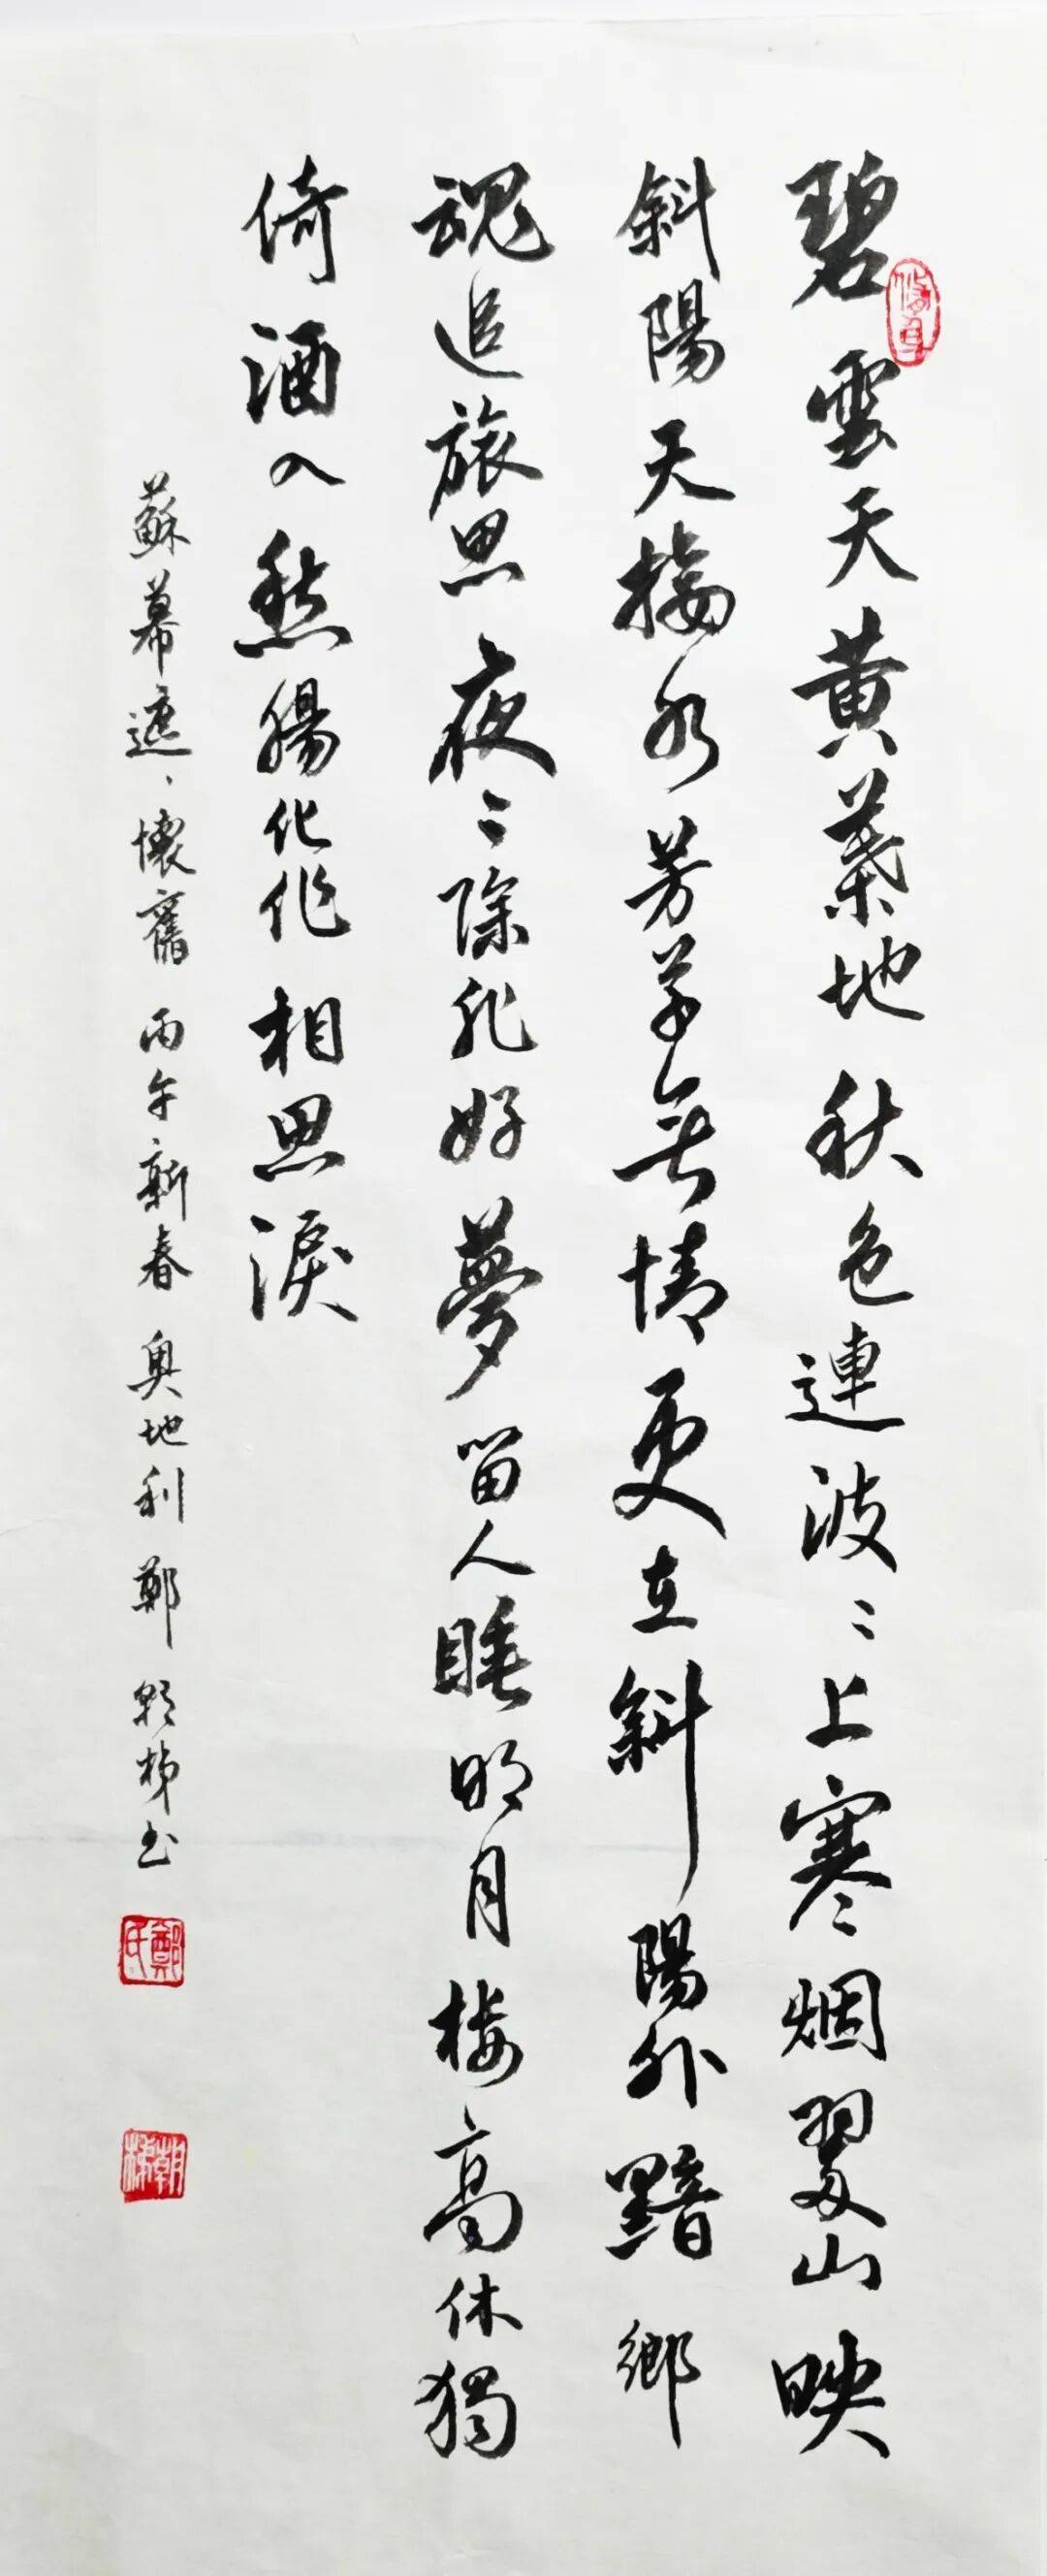 碧雲天黄葉地秋色連波〻上寒烟翠山映
斜陽天接水芳草無情更在斜陽外黯鄉
魂追旅思夜〻除非好夢留人睡明月楼高休獨
倚酒入愁腸化作相思淚
蘇幕遮、懷舊 丙午新春 奥地利 鄭朝梯书
鄭氏
朝梯